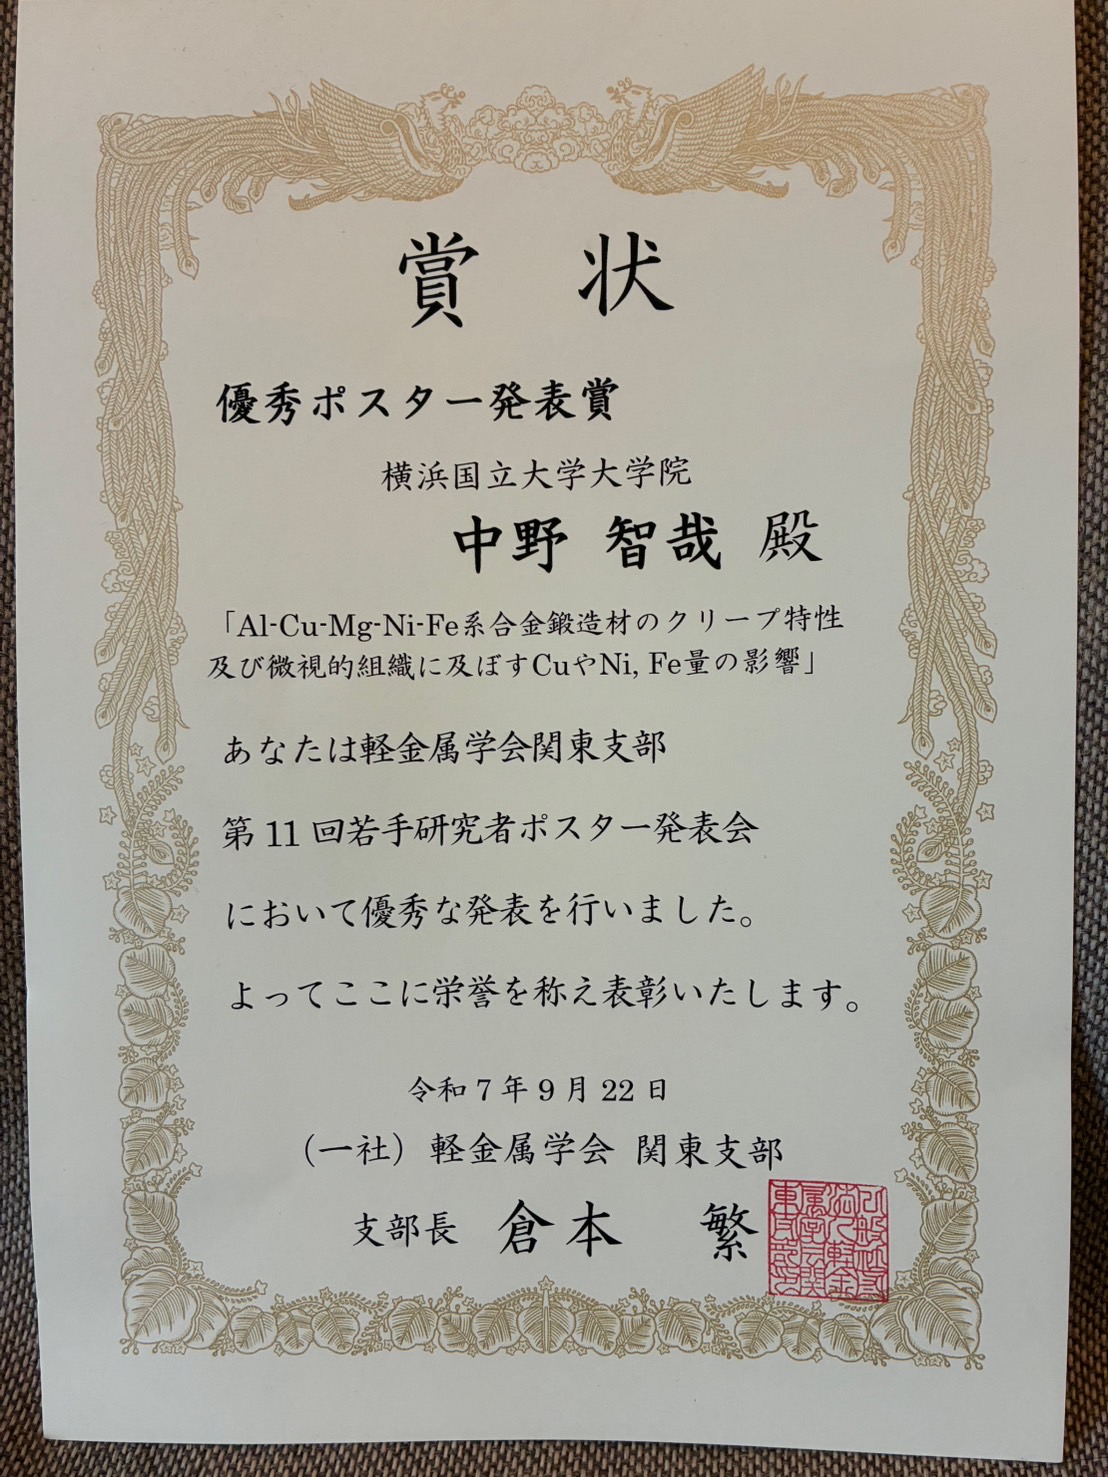 賞 状
優秀ポスター発表賞
横浜国立大学大学院
中野 智哉 殿
「Al-Cu-Mg-Ni-Fe系合金鍛造材のクリープ特性
及び微視的組織に及ぼすCuやNi, Fe量の影響」
あなたは軽金属学会関東支部
第 11 回若手研究者ポスター発表会
において優秀な発表を行いました。
よってここに栄誉を称え表彰いたします。
令和 7 年 9 月 22 日
（一社）軽金属学会 関東支部
支部長 倉本 繁